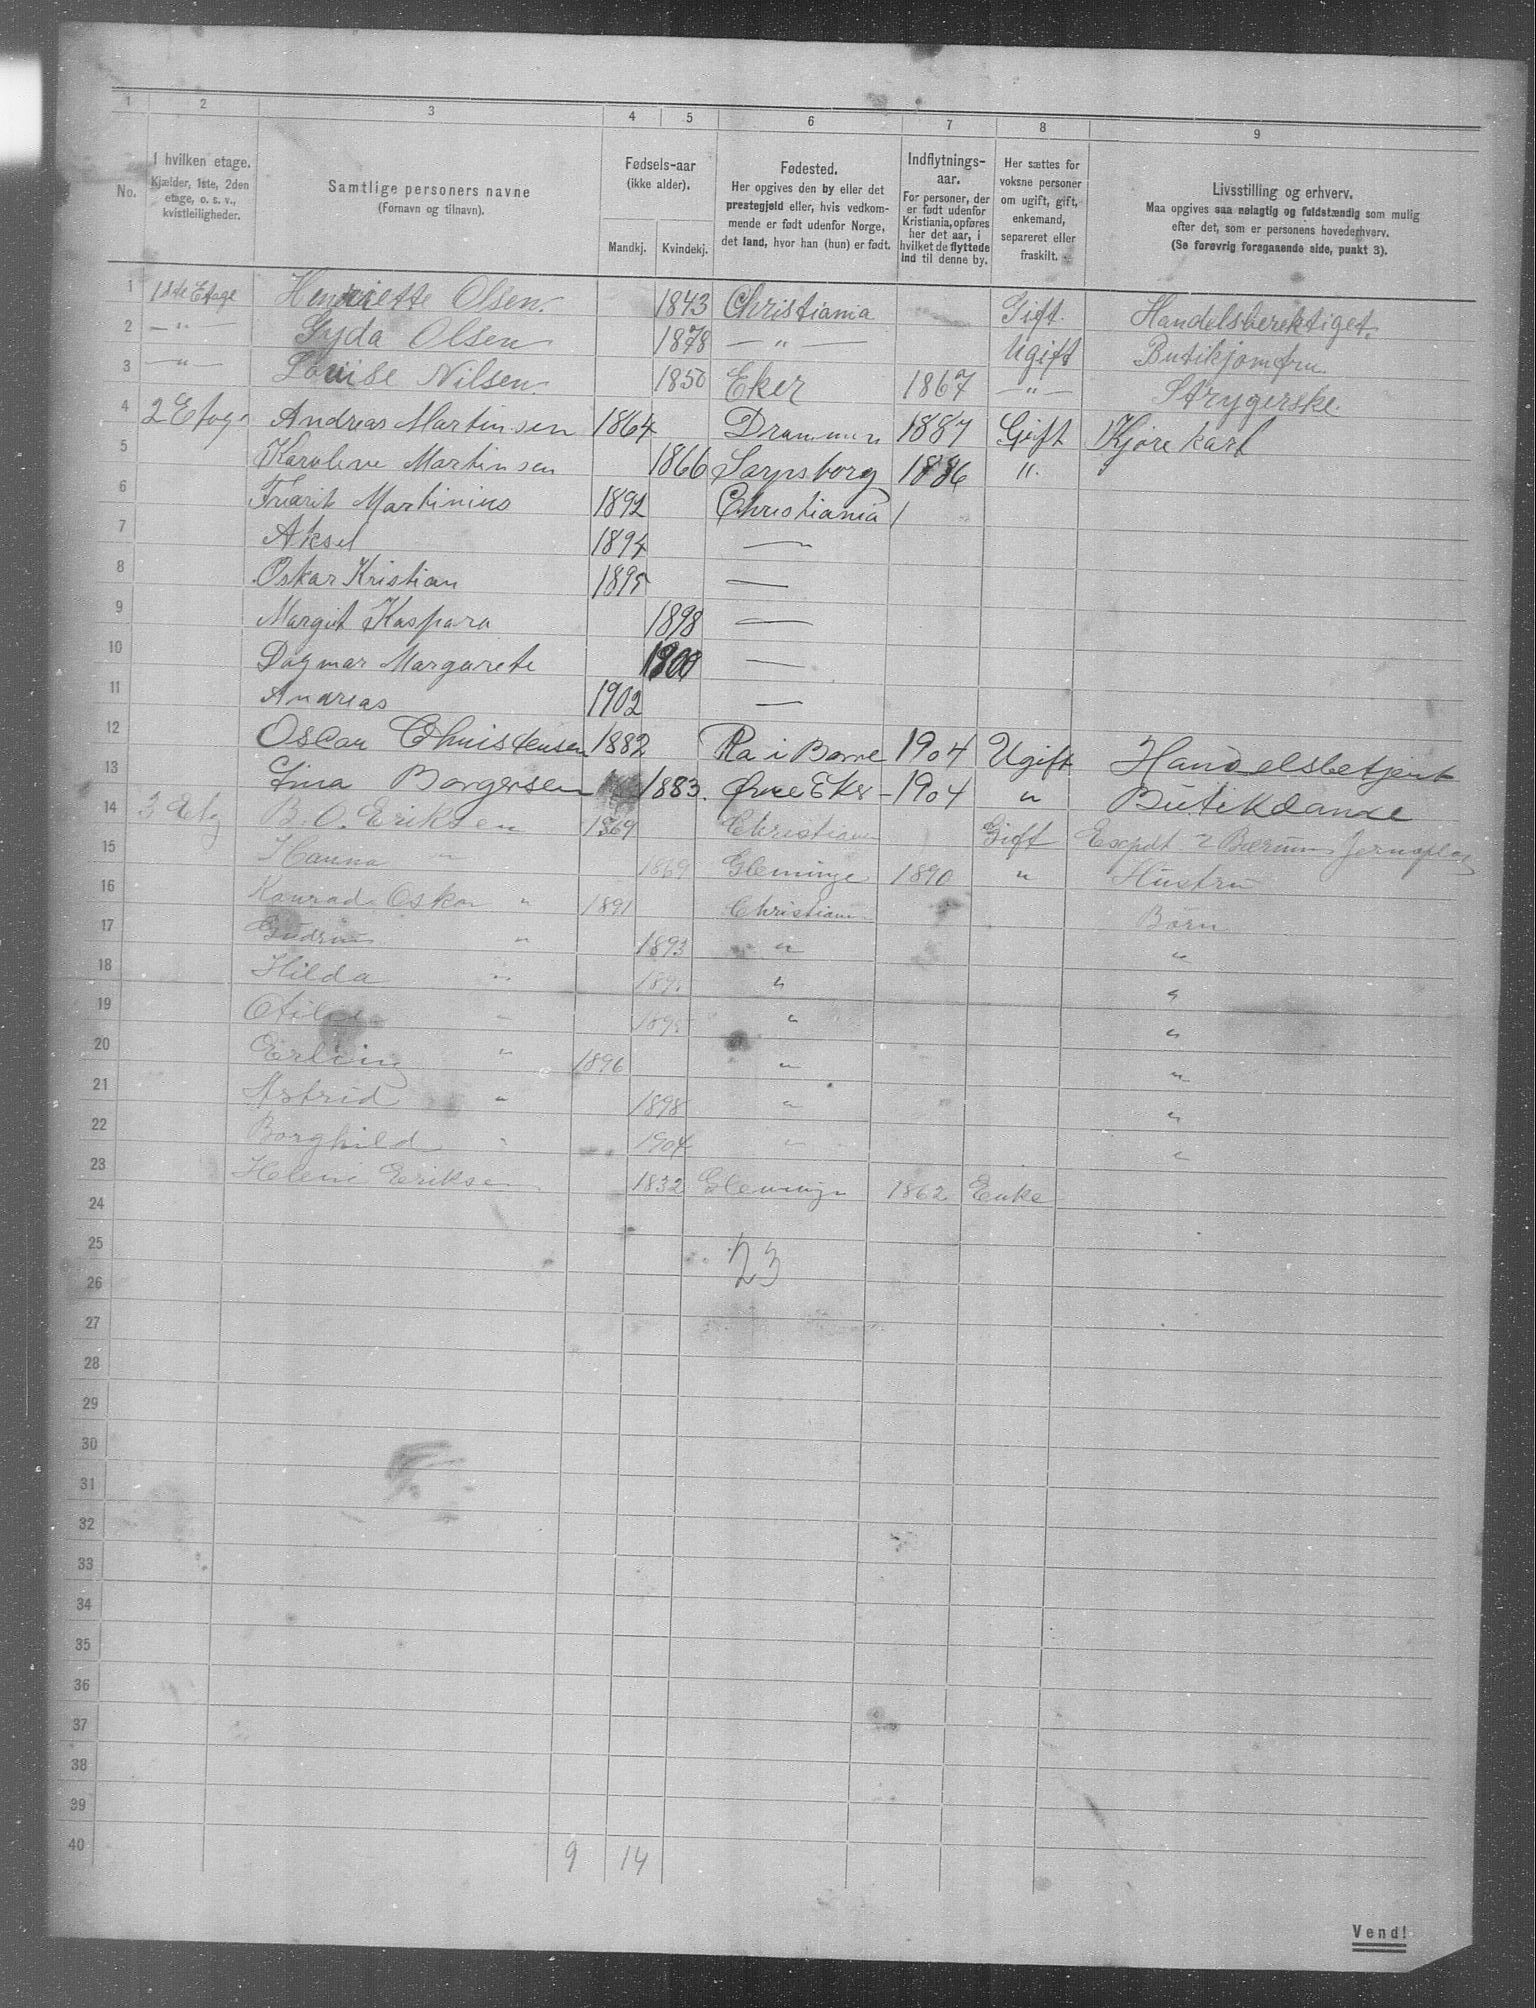 1 2 3 4 5 6 7 8 9
No.
I hvilken etage.
Kjælder, 1ste, 2den
etage, o. s. v.,
kvistleiligheder.
Samtlige personers navne
(Fornavn og tilnavn).
Fødsels-aar
(ikke alder).
Mandkj. Kvindekj.
Fødested.
Her opgives den by eller det
prestegjeld eller, hvis vedkom-
mende er født udenfor Norge,
det land, hvor han (hun) er født.
Indflytnings-
aar.
For personer, der
er født udenfor
Kristiania, opføres
her det aar, i
hvilket de flyttede
ind til denne by.
Her sættes for
voksne personer
om ugift, gift,
enkemand,
separeret eller
fraskilt.
Livsstilling og erhverv.
Maa opgives saa nøiagtig og fuldstændig som mulig
efter det, som er personens hovederhverv.
(Se forøvrig foregaaende side, punkt 3).
1 1ste Etage Henriette Olsen. 1843 Christiania Gift. Handelsberektiget.
2 — " — Gyda Olsen 1878 — " — Ugift Butikjomfru.
3 — " — Louise Nilsen. 1850 Eker 1867 — " — Strygerske.
4 2 Etage Andreas Martinsen 1864 Drammen 1887 Gift Kjørekarl
5 Karoline Martinsen 1866 Sarpsborg 1886 "
6 Fredrik Martinius 1892 Christiania
7 Aksel 1894 —
8 Oskar Kristian 1895 —
9 Margit Kaspara 1898 —
10 Dagmar Margarete 1900 —
11 Andreas 1902 —
12 Oscar Christensen 1882 Ra i Borre 1904 Ugift Handelsbetjent
13 Lina Borgersen 1883. Øvre Eker - 1904 " Butikdame
14 3 Etg B. O. Eriksen 1869 Christiania Gift Exepdt Bærums Jernoplag
15 Hanna " 1869 Glemminge 1890 " Hustru
16 Konrad Oskar " 1891 Christiania Børn
17 Gudrun " 1893 " "
18 Hilda " " "
19 " 1895 " "
20 Erling " 1896 " "
21 Astrid " 1898 " "
22 Borghild " 1904 " "
23 Helene Eriksen 1832 Glemminge 1862 Enke
24
25 23
26
27
28
29
30
31
32
33
34
35
36
37
38
39
40 9 14
Vend!